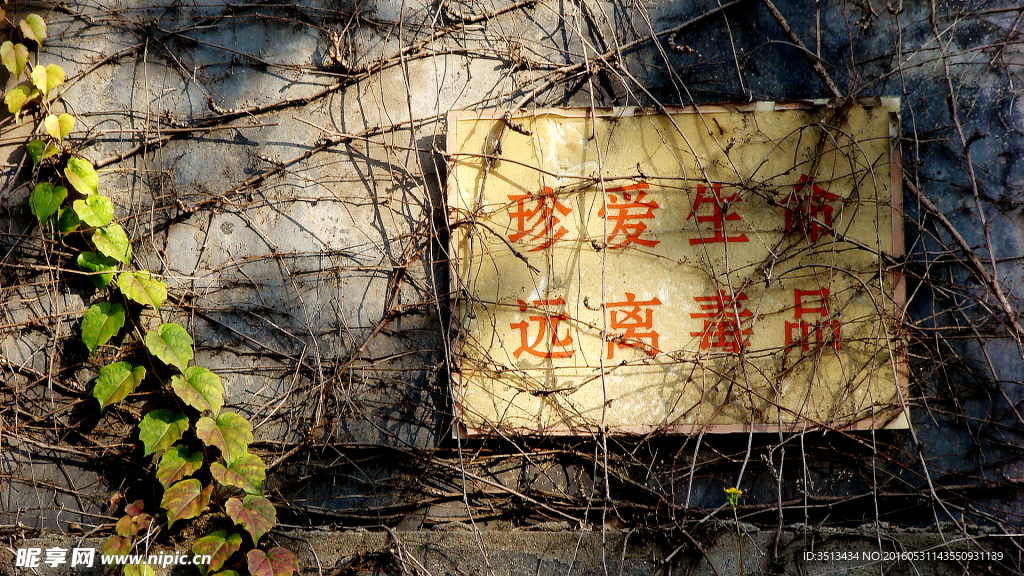 珍爱生命
远离毒品
昵享网 www.nipic.cn
ID:3513434 NO:20160531143550931139